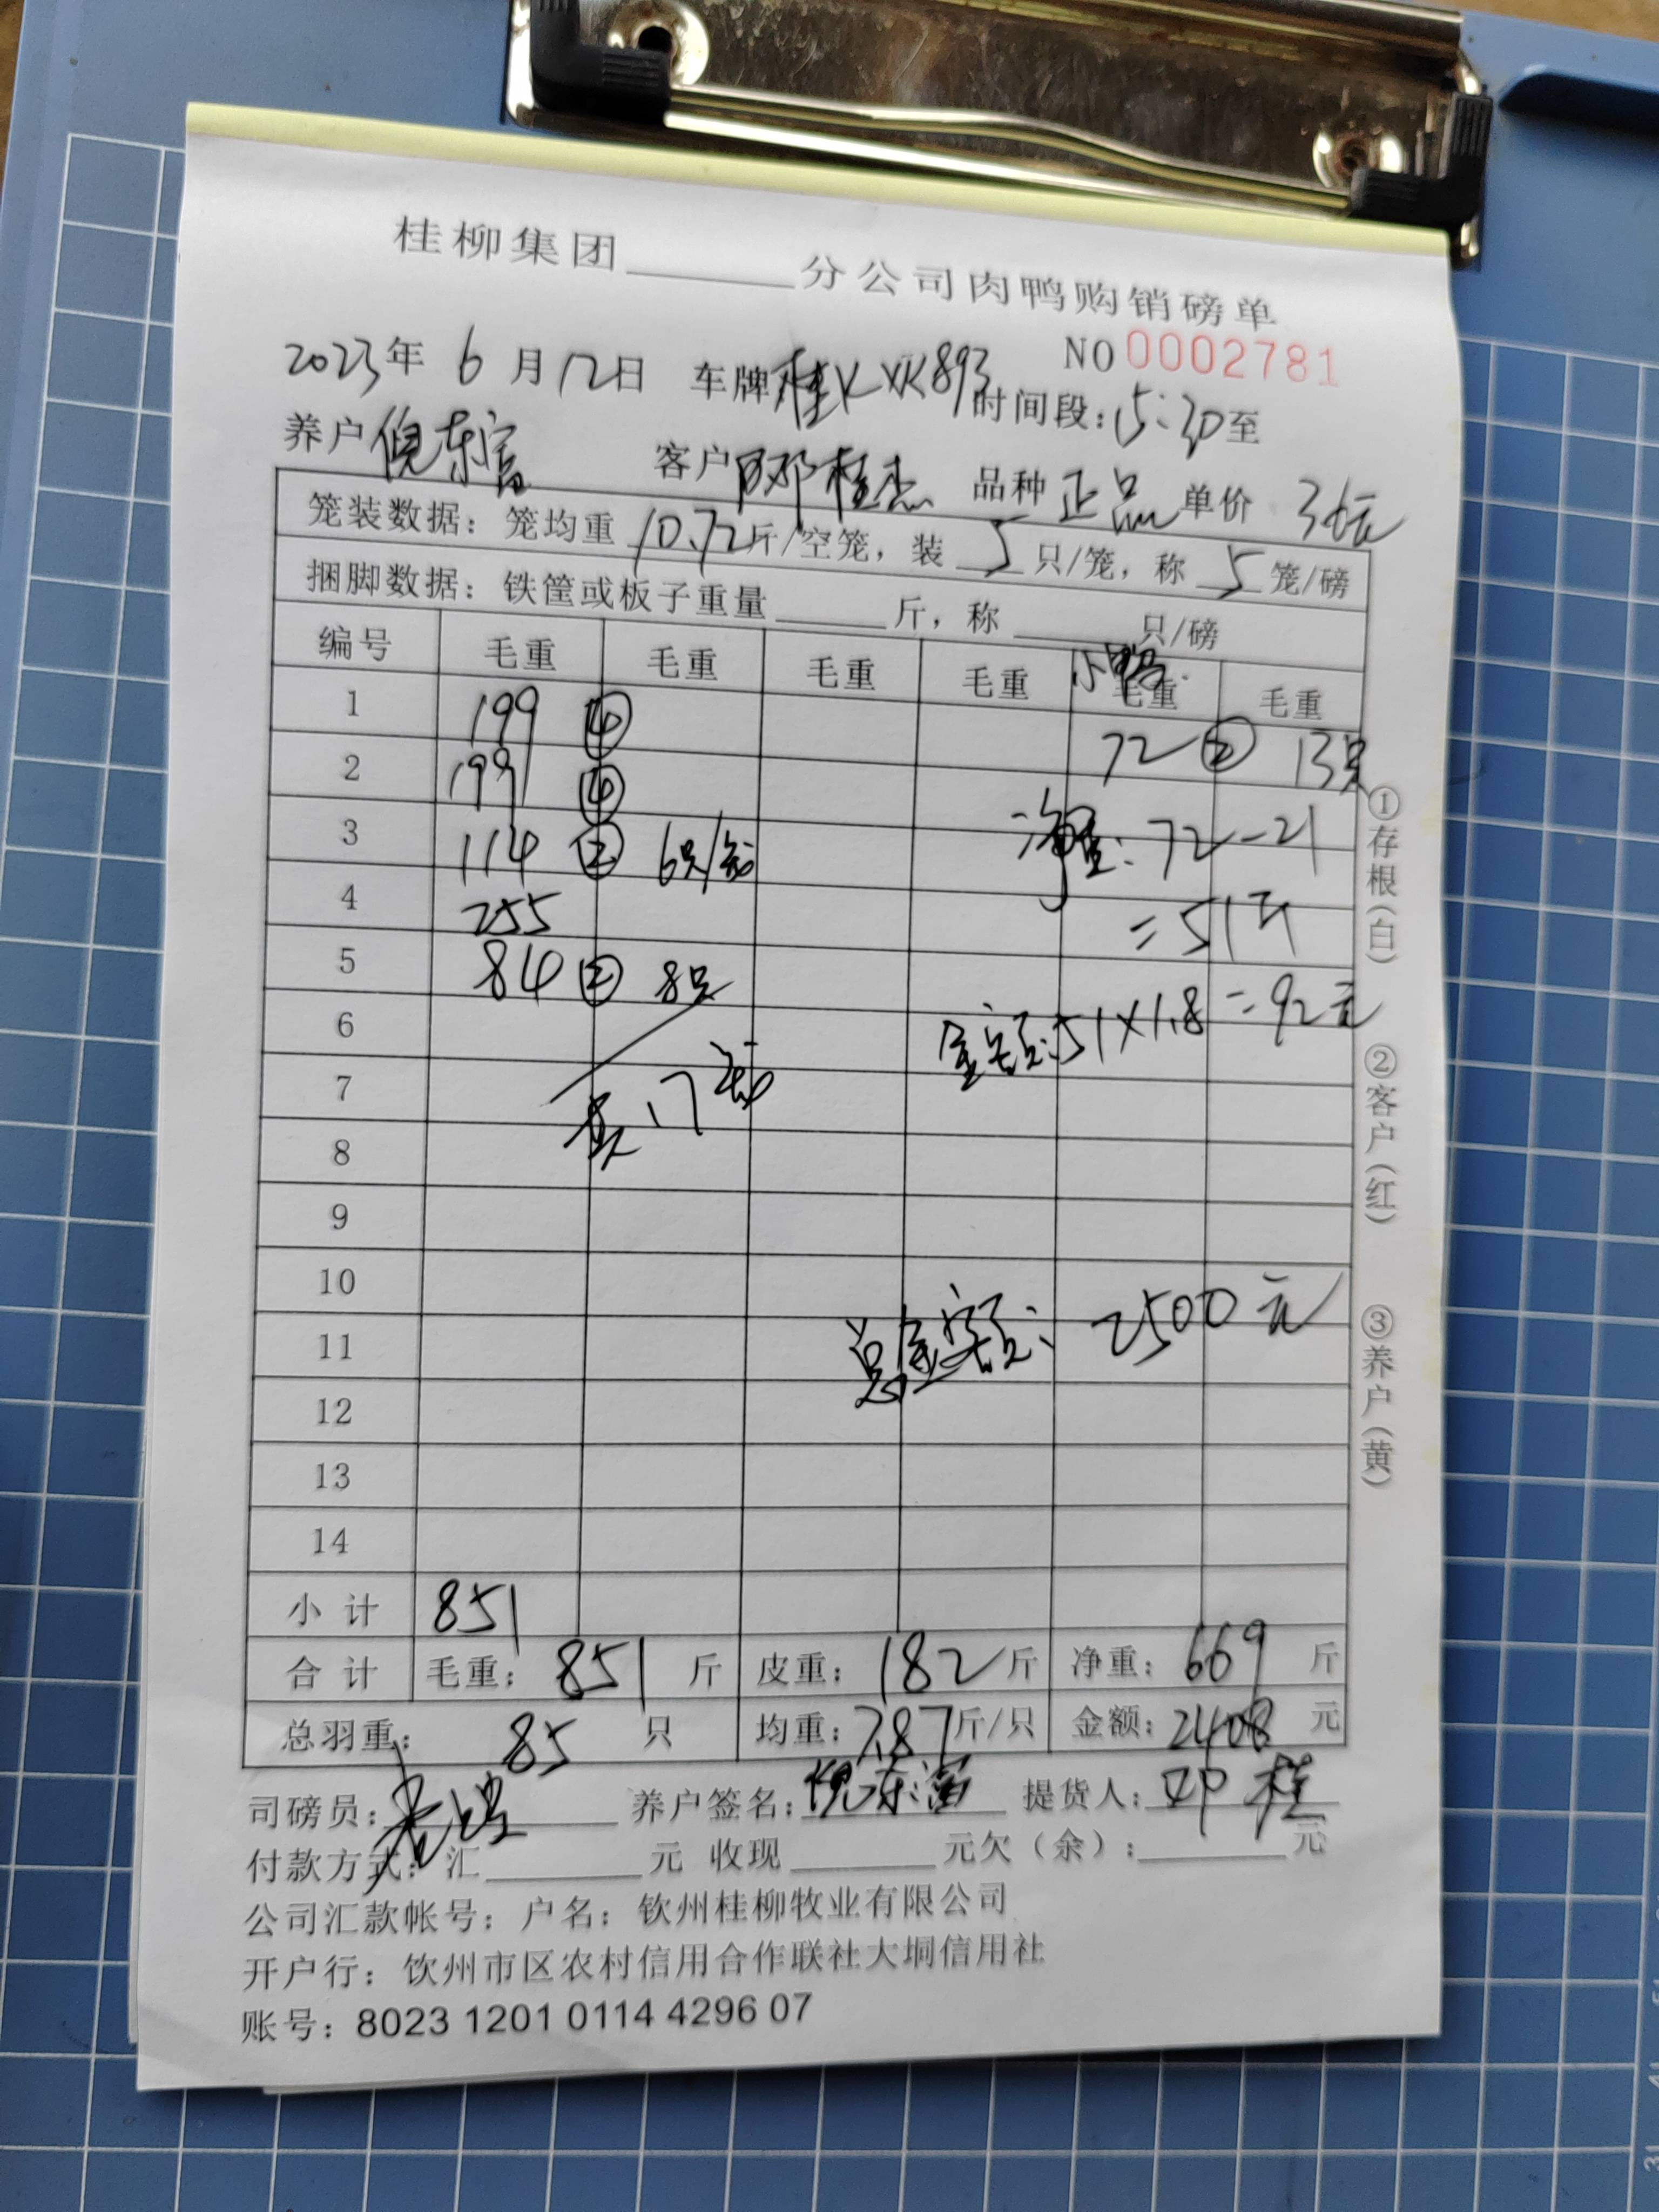 桂柳集团______分公司肉鸭购销磅单
NO 0002781
2023年 6 月 12日 车牌桂K XK893 时间段：15:30至
养户 倪东富 客户 邓桂杰 品种 正品 单价 3.6元
笼装数据：笼均重 10.72斤/空笼，装 5 只/笼，称 5 笼/磅
捆脚数据：铁筐或板子重量______斤，称______只/磅
编号 毛重 毛重 毛重 毛重 毛重 毛重
小鸭
1 199 ④ 72 ② 13只
2 199 ④
3 114 ② 6只/笼 净重：72-21
4 255 =51斤
5 84 ② 8只
6 金额：51×1.8=92元
7 17笼
8
9
10
11 总金额：2500元
12
13
14
小计 851
合计 毛重：851 斤 皮重：182斤 净重：669 斤
总羽重：85 只 均重：7.87斤/只 金额：2408 元
司磅员： 养户签名：倪东富 提货人：邓桂
付款方式：汇______元 收现______元欠（余）：______元
公司汇款帐号：户名：钦州桂柳牧业有限公司
开户行：钦州市区农村信用合作联社大垌信用社
账号：8023 1201 0114 4296 07
①存根（白） ②客户（红） ③养户（黄）